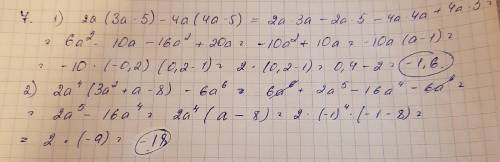 7. 1) 2a (3a - 5) - 4a (4a - 5) = 2a · 3a - 2a · 5 - 4a · 4a + 4a · 5 =
= 6a² - 10a - 16a² + 20a = -10a² + 10a = -10a (a - 1) =
= -10 · (-0,2) (0,2 - 1) = 2 · (0,2 - 1) = 0,4 - 2 = -1,6
2) 2a⁴ (3a² + a - 8) - 6a⁶ = 6a⁶ + 2a⁵ - 16a⁴ - 6a⁶ =
= 2a⁵ - 16a⁴ = 2a⁴ (a - 8) = 2 · (-1)⁴ · (-1 - 8) =
= 2 · (-9) = -18